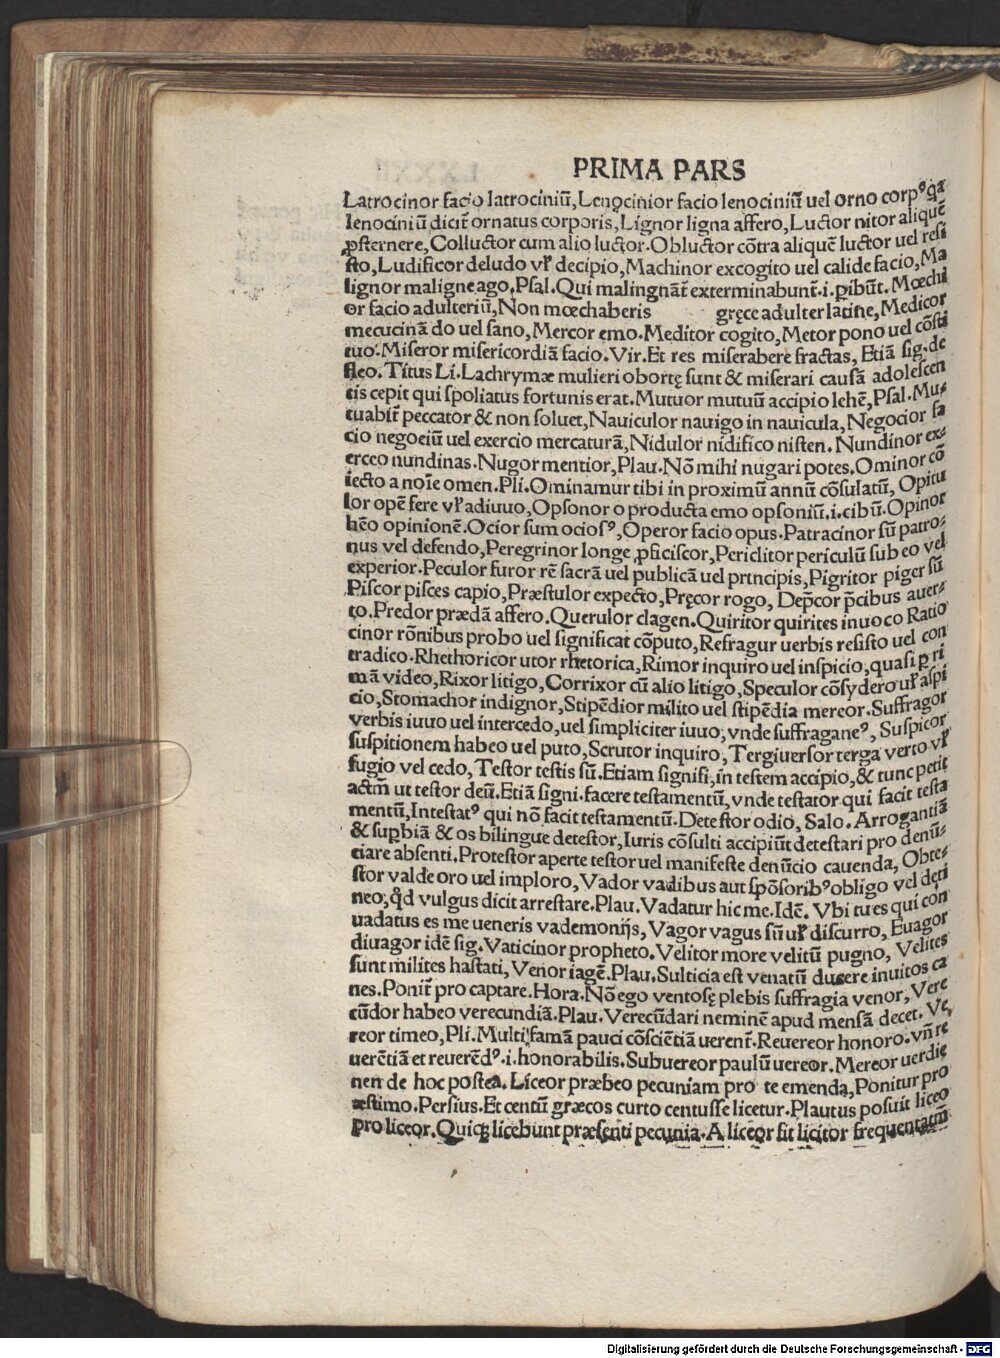 PRIMA PARS
Latrocinor facio latrociniū, Lenocinior facio lenociniū uel orno corpꝰ qa
lenociniū dicit̄ ornatus corporis, Lignor ligna affero, Luctor nitor aliquē
ꝓsternere, Colluctor cum alio luctor. Obluctor cōtra aliquē luctor uel resi
sto, Ludificor deludo vł decipio, Machinor excogito uel calide facio, Ma
lignor maligne ago, Psal. Qui malingnāt̄ exterminabunt̄.i.ꝑibūt. Mœchi
or facio adulteriū, Non mœchaberis gręce adulter latine, Medicor
mecucinā do uel sano, Mercor emo. Meditor cogito, Metor pono uel cōsti
tuo. Miseror misericordiā facio. Vir. Et res miserabere fractas, Etiā sig. de
fleo. Titus Li. Lachrymæ mulieri obortę sunt & miserari causā adolescen
tis cepit qui spoliatus fortunis erat. Mutuor mutuū accipio lehē, Psal. Mu⸗
tuabit̄ peccator & non soluet, Nauiculor nauigo in nauicula, Negocior fa
cio negociū uel exercio mercaturā, Nidulor nidifico nisten. Nundinor ex⸗
erceo nundinas. Nugor mentior, Plau. Nō mihi nugari potes. Ominor cō
iecto a noīe omen. Pli. Ominamur tibi in proximū annū cōsulatū, Opitu
lor opē fere vł adiuuo, Opsonor o producta emo opsoniū.i.cibū. Opinor
hēo opinionē. Ocior sum ociosꝰ, Operor facio opus. Patracinor sū patro⸗
nus vel defendo, Peregrinor longe ꝓficiscor, Periclitor periculū sub eo vel
experior. Peculor furor rē sacrā uel publicā uel principis, Pigritor piger sū
Piscor pisces capio, Præstulor expecto, Pręcor rogo, Dep̄cor p̄cibus auer⸗
to. Predor prædā affero. Querulor clagen. Quiritor quirites inuoco Ratio
cinor rōnibus probo uel significat cōputo, Refragur uerbis resisto uel con
tradico. Rhethoricor utor rhetorica, Rimor inquiro uel inspicio, quasi ꝑ ri
mā video, Rixor litigo, Corrixor cū alio litigo, Speculor cōsydero uł aspi
cio, Stomachor indignor, Stipēdior milito uel stipēdia mereor. Suffragor
verbis iuuo uel intercedo, uel simpliciter iuuo, vnde suffraganeꝰ, Suspicor
suspitionem habeo uel puto, Scrutor inquiro, Tergiuersor terga verto vł
fugio vel cedo, Testor testis sū. Etiam signifi, in testem accipio, & tunc petit
actm̄ ut testor deū. Etiā signi. facere testamentū, vnde testator qui facit testa
mentū, Intestatꝰ qui nō facit testamentū. Detestor odio, Salo. Arrogantiā
& supbiā & os bilingue detestor, Iuris cōsulti accipiūt detestari pro denū⸗
ciare absenti. Protestor aperte testor uel manifeste denūcio cauenda, Obte⸗
stor valde oro uel imploro, Vador vadibus aut spōsoribꝰ obligo vel deti
neo, qd̄ vulgus dicit arrestare. Plau. Vadatur hic me. Idē. Vbi tu es qui con
uadatus es me ueneris vademonijs, Vagor vagus sū uł discurro, Euagor
diuagor idē sig. Vaticinor propheto. Velitor more velitū pugno, Velites
sunt milites hastati, Venor iagē. Plau. Sulticia est venatū ducere inuitos ca
nes. Ponit̄ pro captare. Hora. Nō ego ventosę plebis suffragia venor, Vere
cūdor habeo verecundiā. Plau. Verecūdari neminē apud mensā decet. Ve
reor timeo, Pli. Multi famā pauci cōsciētiā uerent̄. Reuereor honoro. vn̄ re
uerētiā et reuerēdꝰ.i.honorabilis. Subuereor paulū uereor. Mereor uerdie
nen de hoc postea. Liceor præbeo pecuniam pro te emenda, Ponitur pro
æstimo. Persius. Et centū græcos curto centusse licetur. Plautus posuit liceo
pro liceor. Quiqꝫ licebunt præsenti pecunia. A liceor fit licitor frequentatm̄
Digitalisierung gefördert durch die Deutsche Forschungsgemeinschaft - DFG